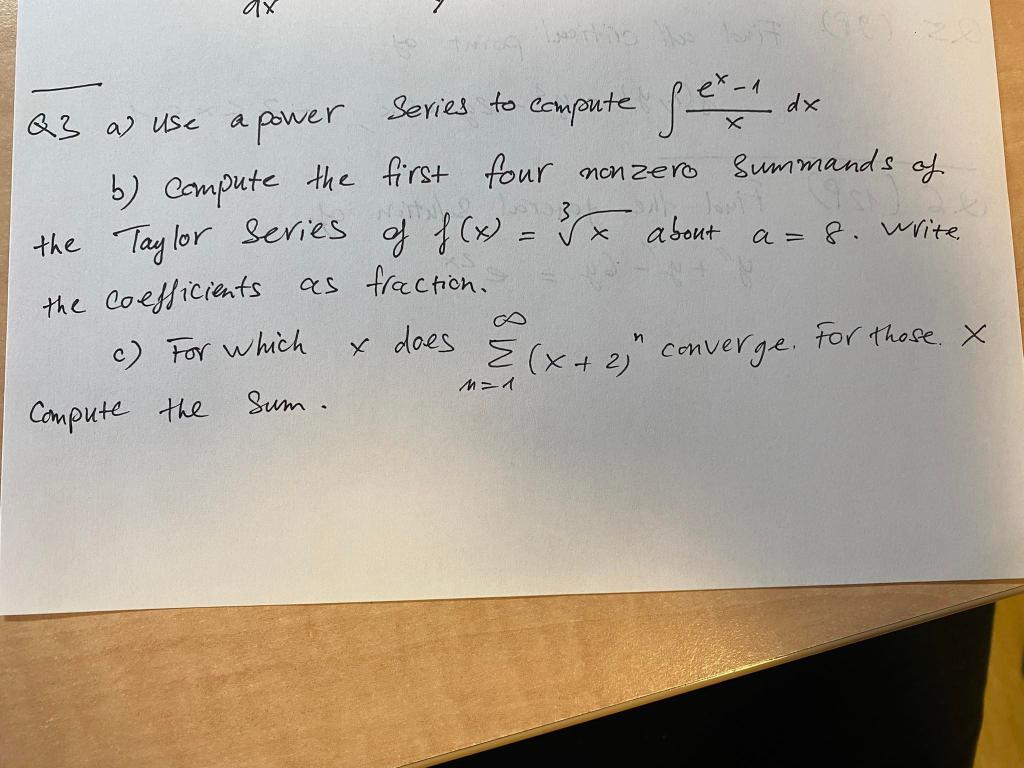 dx
Q3 a) use a power Series to compute ∫ (e^x - 1)/x dx
b) Compute the first four nonzero Summands of
the Taylor Series of f(x) = ∛x about a = 8. Write
the Coefficients as fraction.
c) For which x does ∑_{n=1}^{∞} (x + 2)^n converge. For those x
Compute the Sum.